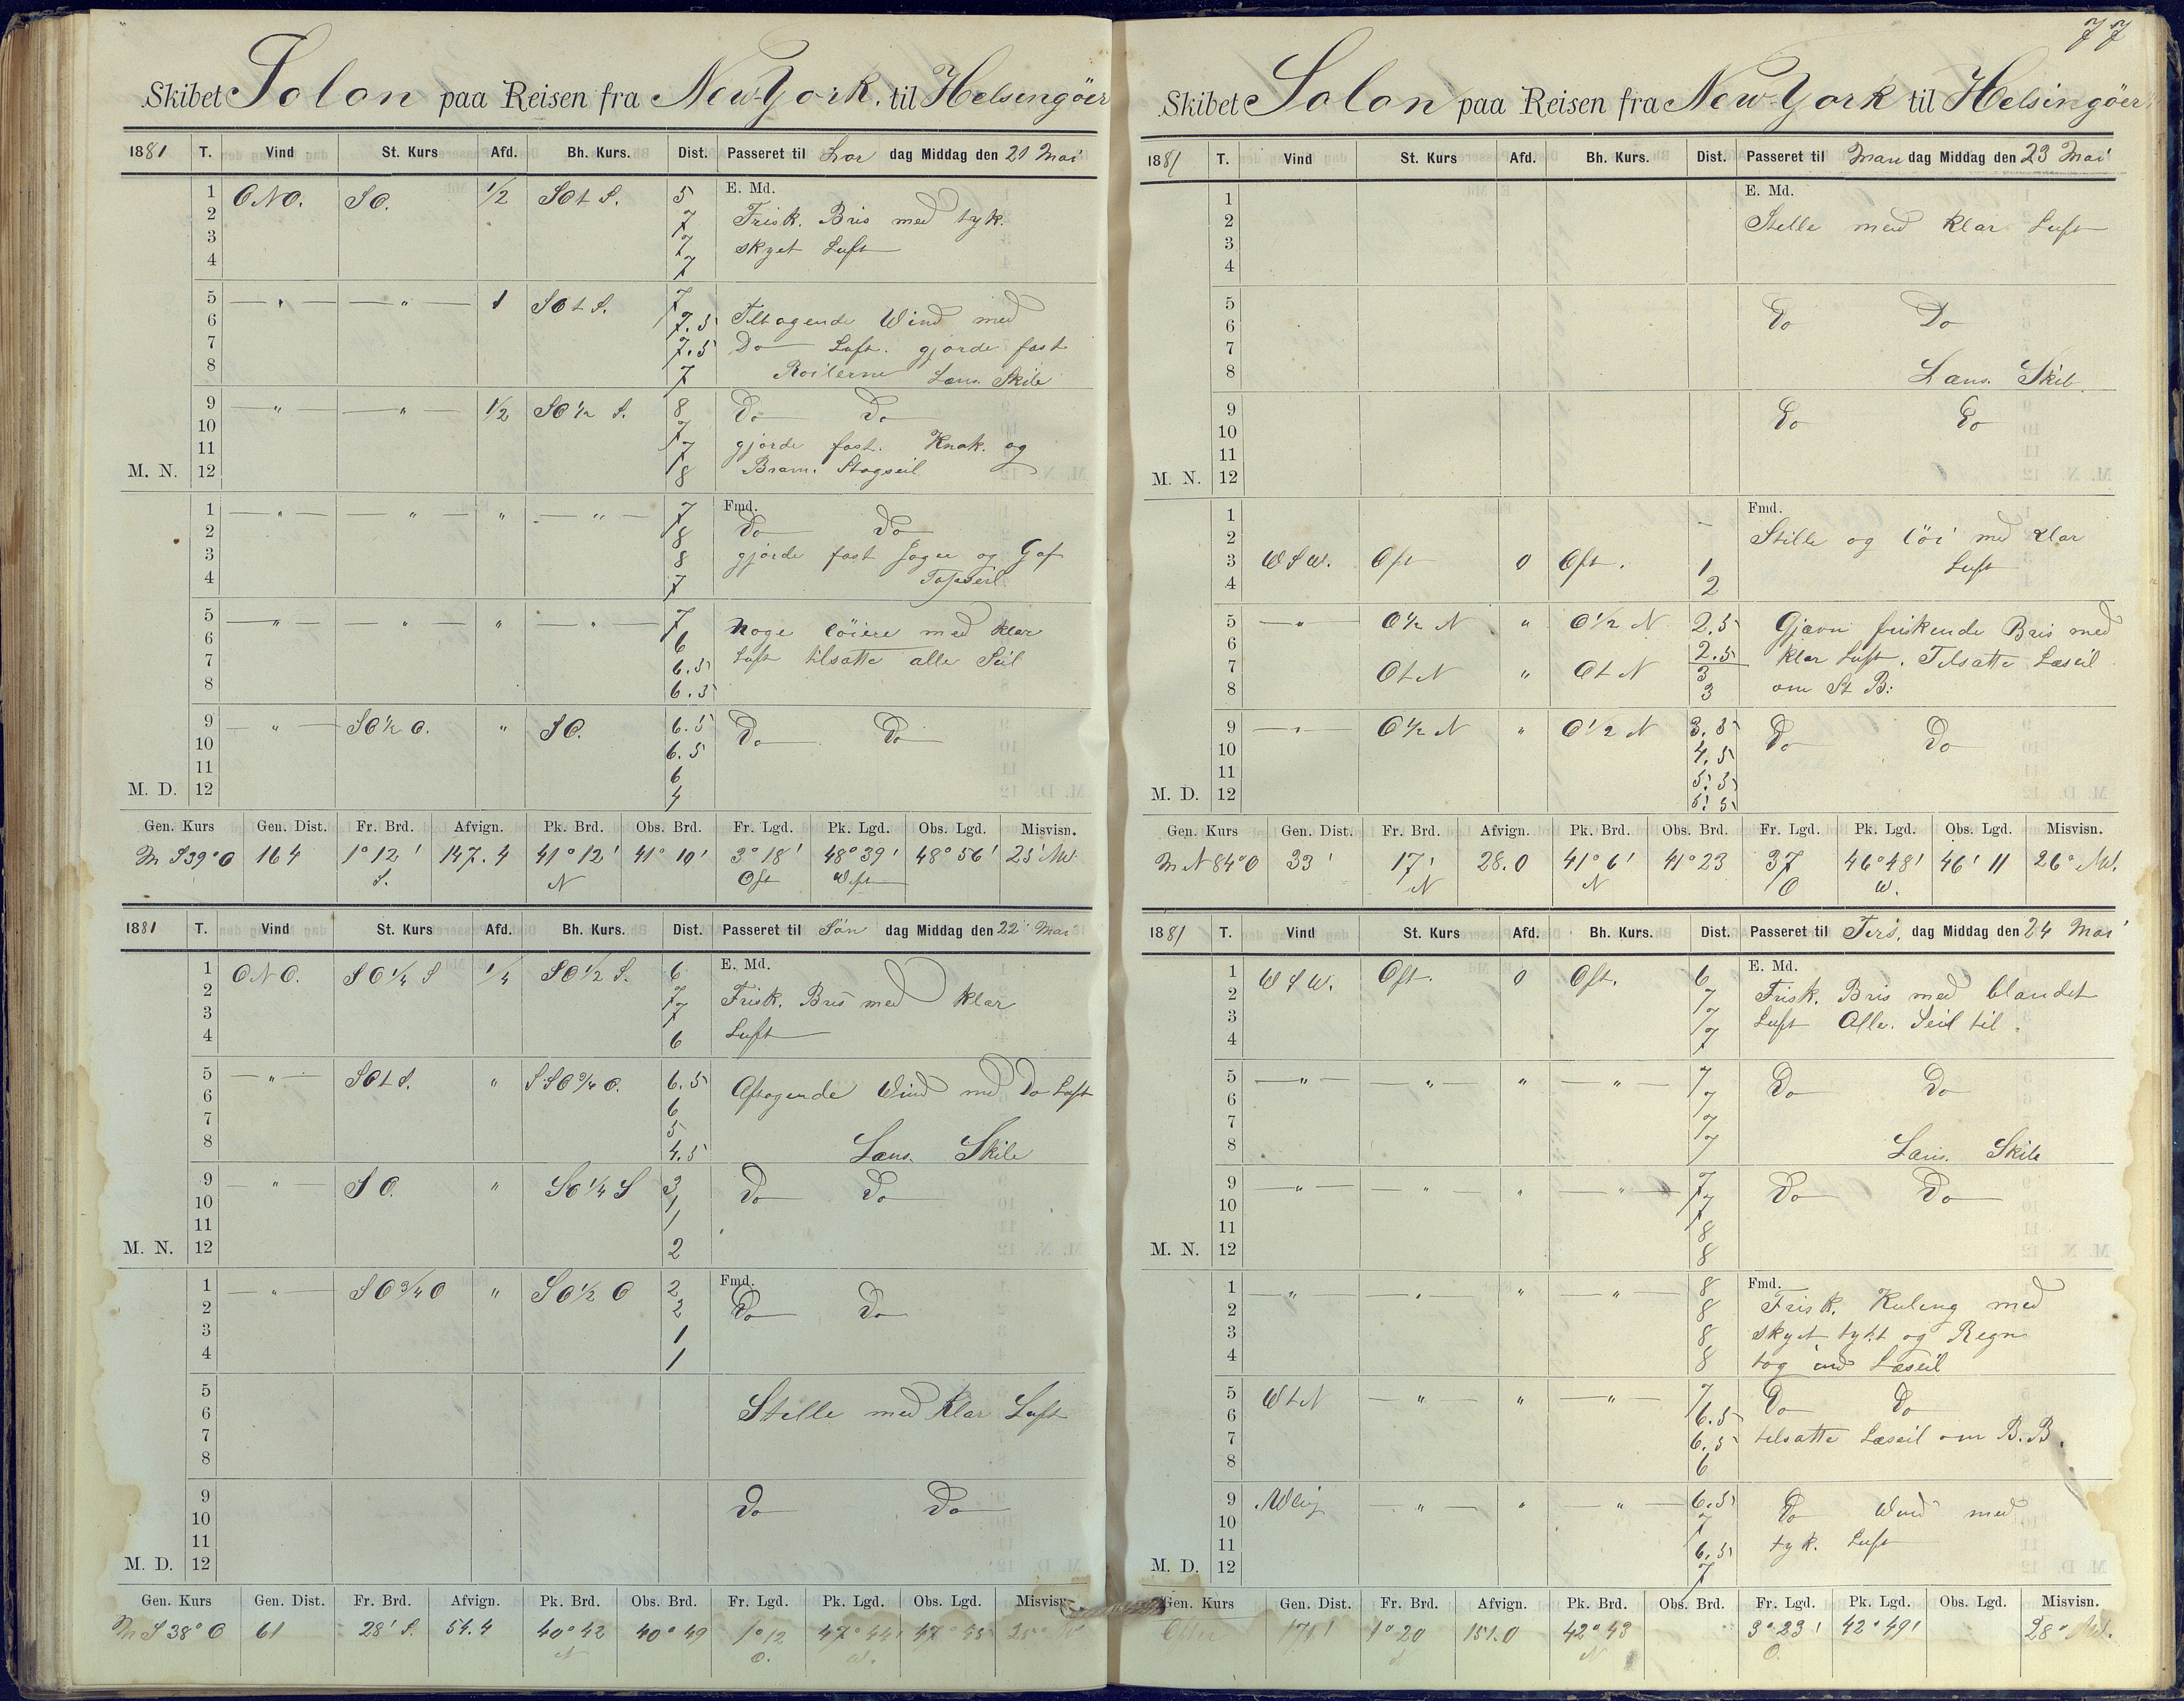 Skibet Solon paa Reisen fra New-York. til Helsingöer
1881 T. Vind St. Kurs Afd. Bh. Kurs. Dist. Passeret til Lör dag Middag den 21 Mai
E. Md.
1 ONO. SO. 1/2 SOtS. 5
2 7 Frisk. Bris med tyk.
3 7 skyet Luft
4 7
5 " " 1 SOtS. 7
6 7.5 Tiltagende Wind med
7 7.5 Do Luft. gjorde fast
8 7 Læns. Skib
9 " " 1/2 SO 1/2 S. 8 Do Do
10 7
11 7 gjorde fast. og
M. N. 12 8 Bram. Stagseil
Fmd.
1 " " " " 7 Do Do
2 8
3 8 gjorde fast Jager og Gaf
4 7 Topseil
5 " " " " 7
6 6 Noge löiere med klar
7 6.5 Luft tilsatte alle Seil
8 6.5
9 " SO 1/2 O. " SO. 6.5 Do Do
10 6.5
11 6
M. D. 12 4
Gen. Kurs Gen. Dist. Fr. Brd. Afvign. Pk. Brd. Obs. Brd. Fr. Lgd. Pk. Lgd. Obs. Lgd. Misvisn.
M S39°O 164 1°12' 147.4 41°12' 41°10' 3°18' 48°39' 48°56' 25° NW.
S. N Ost West
1881 T. Vind St. Kurs Afd. Bh. Kurs. Dist. Passeret til Sön dag Middag den 22 Mai
E. Md.
1 ONO. SO 1/4 S 1/4 SO 1/2 S. 6
2 7 Frisk. Bris med klar
3 7
4 6 Luft
5 " SOtS. " SSO 3/4 O. 6.5
6 6 Aftagende Wind med Do Luft
7 5
8 4.5 Læns. Skib
9 " SO. " SO 1/4 S 3 Do Do
10 1
11 1
M. N. 12 2
Fmd.
1 " SO 3/4 O " SO 1/2 O 2
2 2 Do Do
3 1
4 1
5
6 Stille med klar Luft
7
8
9
10 Do Do
11
M. D. 12
Gen. Kurs Gen. Dist. Fr. Brd. Afvign. Pk. Brd. Obs. Brd. Fr. Lgd. Pk. Lgd. Obs. Lgd. Misvisn.
M S38°O 61 28' S. 54.4 40°42 40°49 1°12 47°44' 47°45
N O. W.
77
Skibet Solon paa Reisen fra New-York til Helsingöer
1881 T. Vind St. Kurs Afd. Bh. Kurs. Dist. Passeret til Man dag Middag den 23 Mai
E. Md.
1
2 Stille med klar Luft
3
4
5
6 Do Do
7
8 Læns. Skib.
9
10 Do Do
11
M. N. 12
Fmd.
1
2 Stille og löi med klar
3 WSW. Ost 0 Ost. 1 Luft
4 2
5 " O 1/2 N " O 1/2 N. 2.5 Gjævn friskende Bris med
6 2.5
7 OtN " OtN 3 klar Luft. Tilsatte Læseil
8 3 om St B:
9 " O 1/2 N " O 1/2 N 3.5
10 4.5 Do Do
11 5.5
M. D. 12 5.5
Gen. Kurs Gen. Dist. Fr. Brd. Afvign. Pk. Brd. Obs. Brd. Fr. Lgd. Pk. Lgd. Obs. Lgd. Misvisn.
M N84°O 33' 17' 28.0 41°6' 41°23 37 46°48' 46' 11 26° NW.
N N O W.
1881 T. Vind St. Kurs Afd. Bh. Kurs. Dist. Passeret til Tirs. dag Middag den 24 Mai
E. Md.
1 WSW. Ost. 0 Ost. 6
2 7 Frisk. Bris med blandet
3 7 Luft Alle. Seil til.
4 7
5 " " " " 7 Do Do
6 7
7 7
8 7 Læns. Skib
9 " " " " 7 Do Do
10 7
11 8
M. N. 12 8
Fmd.
1 " " " " 8
2 8 Frisk. Kuling med
3 8 skyet tykt og Regn
4 8 tog ind Læseil
5 WtN " " " 7 Do Do
6 6.5
7 6.5 tilsatte Læseil om B.B.
8 6
9 NWlig " " " 6.5
10 7 Do Wind med
11 6.5 tyk. Luft
M. D. 12 7
Gen. Kurs Gen. Dist. Fr. Brd. Afvign. Pk. Brd. Obs. Brd. Fr. Lgd. Pk. Lgd. Obs. Lgd. Misvisn.
171' 1°20 151.0 42°43 3°23' 42°49' 28° NW.
N N O.